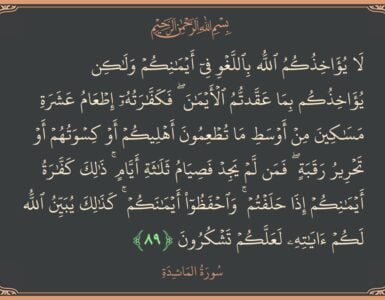 بِسْمِ اللَّهِ الرَّحْمَٰنِ الرَّحِيمِ
لَا يُؤَاخِذُكُمُ ٱللَّهُ بِٱللَّغْوِ فِىٓ أَيْمَٰنِكُمْ وَلَٰكِن
يُؤَاخِذُكُم بِمَا عَقَّدتُّمُ ٱلْأَيْمَٰنَ ۖ فَكَفَّٰرَتُهُۥٓ إِطْعَامُ عَشَرَةِ
مَسَٰكِينَ مِنْ أَوْسَطِ مَا تُطْعِمُونَ أَهْلِيكُمْ أَوْ كِسْوَتُهُمْ أَوْ
تَحْرِيرُ رَقَبَةٍ ۖ فَمَن لَّمْ يَجِدْ فَصِيَامُ ثَلَٰثَةِ أَيَّامٍ ۚ ذَٰلِكَ كَفَّٰرَةُ
أَيْمَٰنِكُمْ إِذَا حَلَفْتُمْ ۚ وَٱحْفَظُوٓا۟ أَيْمَٰنَكُمْ ۚ كَذَٰلِكَ يُبَيِّنُ ٱللَّهُ
لَكُمْ ءَايَٰتِهِۦ لَعَلَّكُمْ تَشْكُرُونَ ﴿٨٩﴾
سُورَةُ المَائِدَةِ